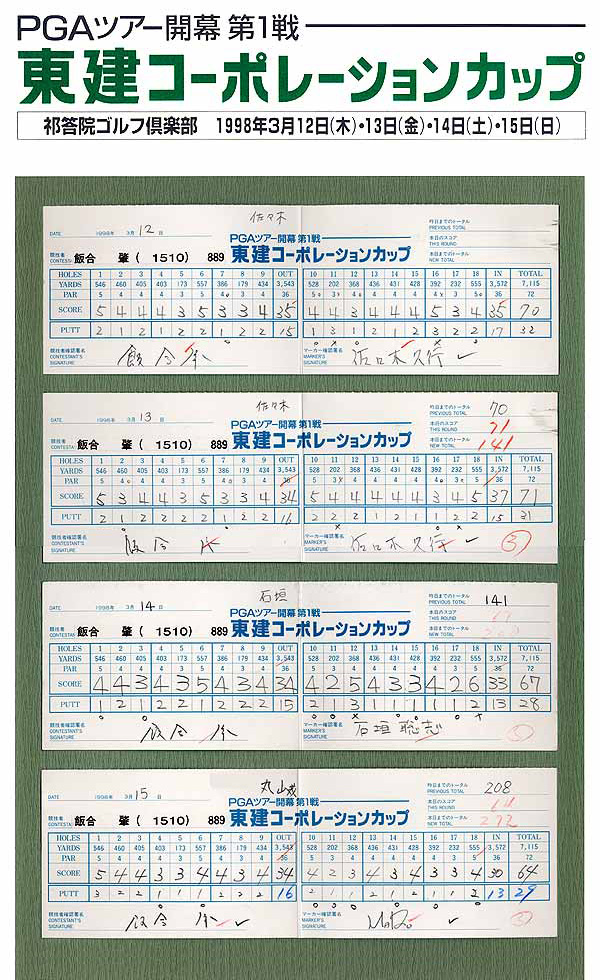 PGAツアー開幕 第1戦
東建コーポレーションカップ
祁答院ゴルフ倶楽部 1998年3月12日(木)・13日(金)・14日(土)・15日(日)
佐々木
DATE 1998年 3月 12 日
PGAツアー開幕 第1戦
昨日までのトータル PREVIOUS TOTAL
本日のスコア THIS ROUND
本日までのトータル NEW TOTAL
競技者 CONTESTANT 飯合 肇 ( 1510) 889 東建コーポレーションカップ
HOLES 1 2 3 4 5 6 7 8 9 OUT 10 11 12 13 14 15 16 17 18 IN TOTAL
YARDS 546 460 405 403 173 557 386 179 434 3,543 528 202 368 436 431 428 392 232 555 3,572 7,115
PAR 5 4 4 4 3 5 4 3 4 36 5 3 4 4 4 4 4 3 5 36 72
SCORE 5 4 4 4 3 5 3 3 4 35 4 4 3 4 4 4 5 3 4 35 70
PUTT 2 1 2 1 2 2 1 2 2 15 1 3 1 2 1 2 3 2 2 17 32
競技者確認署名 CONTESTANT'S SIGNATURE 飯合 肇
マーカー確認署名 MARKER'S SIGNATURE 佐々木久行
佐々木
DATE 1998年 3月 13 日
PGAツアー開幕 第1戦
昨日までのトータル PREVIOUS TOTAL 70
本日のスコア THIS ROUND 71
本日までのトータル NEW TOTAL 141
競技者 CONTESTANT 飯合 肇 ( 1510) 889 東建コーポレーションカップ
HOLES 1 2 3 4 5 6 7 8 9 OUT 10 11 12 13 14 15 16 17 18 IN TOTAL
YARDS 546 460 405 403 173 557 386 179 434 3,543 528 202 368 436 431 428 392 232 555 3,572 7,115
PAR 5 4 4 4 3 5 4 3 4 36 5 3 4 4 4 4 4 3 5 36 72
SCORE 5 3 4 4 3 5 3 3 4 34 5 4 4 4 4 4 3 4 5 37 71
PUTT 2 1 2 2 2 2 1 2 2 16 2 2 2 1 2 1 1 2 2 15 31
競技者確認署名 CONTESTANT'S SIGNATURE 飯合 肇
マーカー確認署名 MARKER'S SIGNATURE 佐々木久行
石垣
DATE 1998年 3月 14 日
PGAツアー開幕 第1戦
昨日までのトータル PREVIOUS TOTAL 141
本日のスコア THIS ROUND
本日までのトータル NEW TOTAL
競技者 CONTESTANT 飯合 肇 ( 1510) 889 東建コーポレーションカップ
HOLES 1 2 3 4 5 6 7 8 9 OUT 10 11 12 13 14 15 16 17 18 IN TOTAL
YARDS 546 460 405 403 173 557 386 179 434 3,543 528 202 368 436 431 428 392 232 555 3,572 7,115
PAR 5 4 4 4 3 5 4 3 4 36 5 3 4 4 4 4 4 3 5 36 72
SCORE 4 4 3 4 3 5 4 3 4 34 4 2 5 4 3 3 4 2 6 33 67
PUTT 1 2 1 2 2 1 2 2 2 15 2 1 3 1 1 1 1 1 2 13 28
競技者確認署名 CONTESTANT'S SIGNATURE 飯合 肇
マーカー確認署名 MARKER'S SIGNATURE 石垣聡志
丸山茂
DATE 1998年 3月 15 日
PGAツアー開幕 第1戦
昨日までのトータル PREVIOUS TOTAL 208
本日のスコア THIS ROUND 64
本日までのトータル NEW TOTAL 272
競技者 CONTESTANT 飯合 肇 ( 1510) 889 東建コーポレーションカップ
HOLES 1 2 3 4 5 6 7 8 9 OUT 10 11 12 13 14 15 16 17 18 IN TOTAL
YARDS 546 460 405 403 173 557 386 179 434 3,543 528 202 368 436 431 428 392 232 555 3,572 7,115
PAR 5 4 4 4 3 5 4 3 4 36 5 3 4 4 4 4 4 3 5 36 72
SCORE 5 4 4 3 3 4 4 3 4 34 4 2 3 4 3 4 3 3 4 30 64
PUTT 3 2 2 1 1 1 2 2 2 16 2 1 1 2 1 1 1 1 3 13 29
競技者確認署名 CONTESTANT'S SIGNATURE 飯合 肇
マーカー確認署名 MARKER'S SIGNATURE